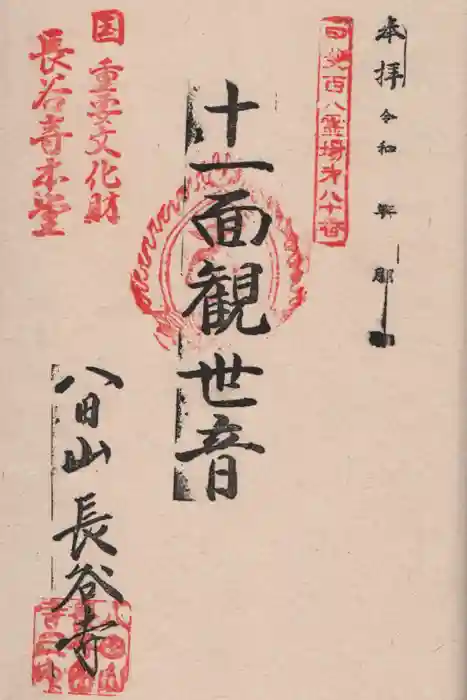 奉拝 令和 年
百八霊場第八十番
十一面観世音
国 重要文化財
長谷寺本堂
八田山 長谷寺